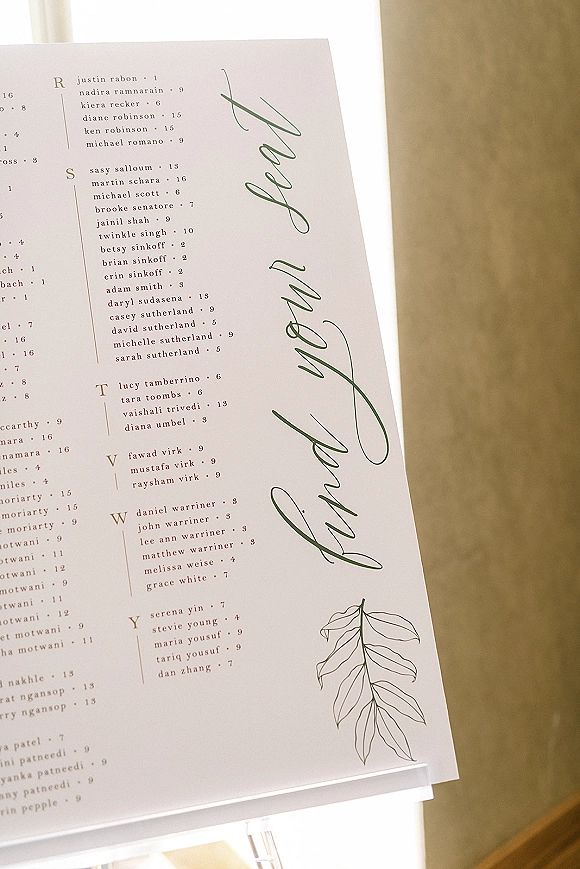 16
8
4
1
ross • 3
1
5
4
4
ch • 1
bach • 1
r • 1
el • 7
16
16
7
z • 8
z • 8
ccarthy • 9
mara • 16
namara • 16
iles • 4
niles • 4
moriarty • 15
moriarty • 15
e moriarty • 9
motwani • 9
motwani • 11
otwani • 12
motwani • 9
otwani • 11
otwani • 12
et motwani • 9
ha motwani • 11
d nakhle • 13
rat ngansop • 13
rry ngansop • 13
ya patel • 7
ini patneedi • 9
yanka patneedi • 9
nny patneedi • 9
rin pepple • 9
R
justin rabon • 1
nadira ramnarain • 9
kiera recker • 6
diane robinson • 15
ken robinson • 15
michael romano • 9
S
sasy salloum • 13
martin schara • 16
michael scott • 6
brooke senatore • 7
jainil shah • 9
twinkle singh • 10
betsy sinkoff • 2
brian sinkoff • 2
erin sinkoff • 2
adam smith • 3
daryl sudasena • 13
casey sutherland • 9
david sutherland • 5
michelle sutherland • 9
sarah sutherland • 5
T
lucy tamberrino • 6
tara toombs • 6
vaishali trivedi • 13
diana umbel • 3
V
fawad virk • 9
mustafa virk • 9
raysham virk • 9
W
daniel warriner • 3
john warriner • 3
lee ann warriner • 3
matthew warriner • 3
melissa weise • 4
grace white • 7
Y
serena yin • 7
stevie young • 4
maria yousuf • 9
tariq yousuf • 9
dan zhang • 7
find your seat